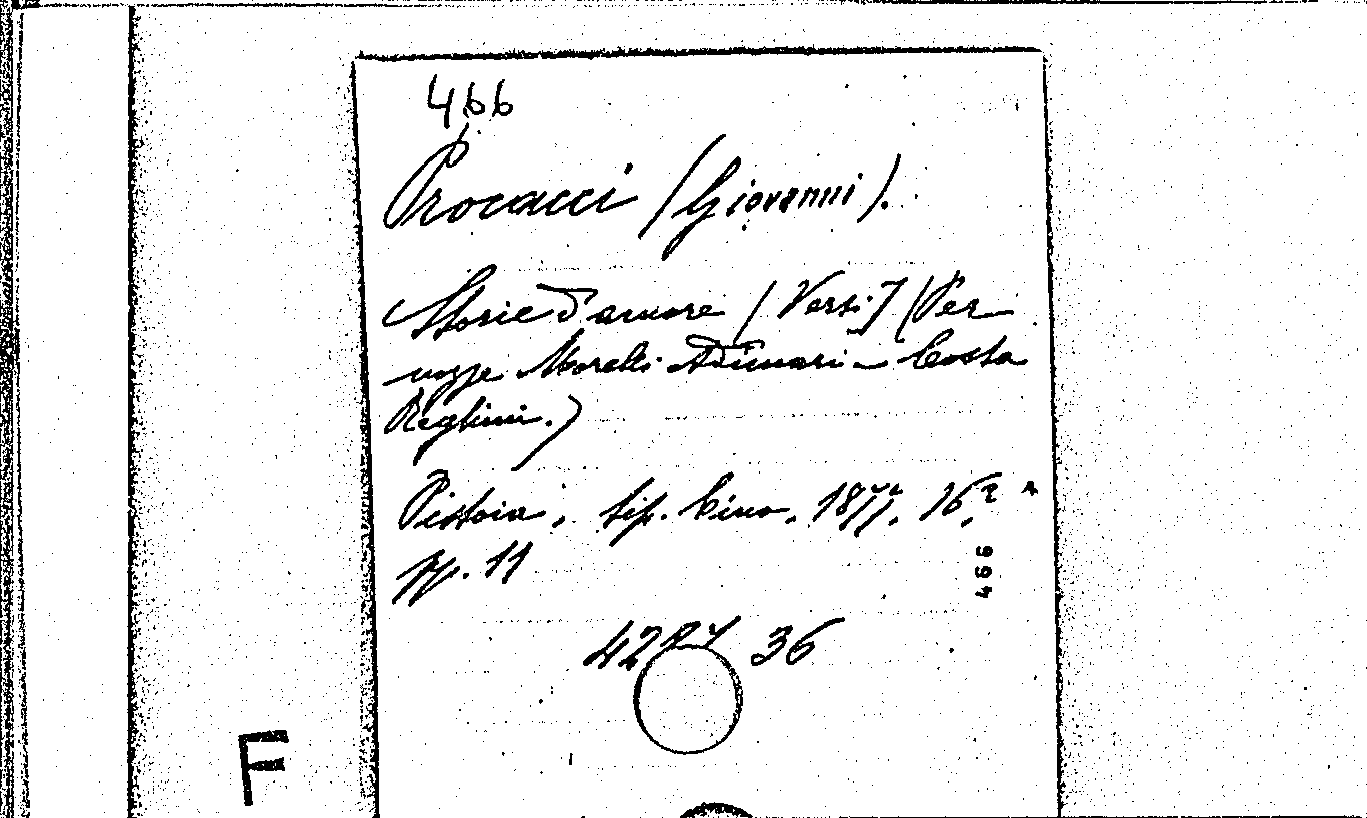 466
Procacci (Giovanni).
Storie d'amore [Versi] (Per
nozze Morelli Adimari - Costa
Reghini.)
Pistoia, tip. Cino, 1877, 16.º
pp. 11
466
36
F